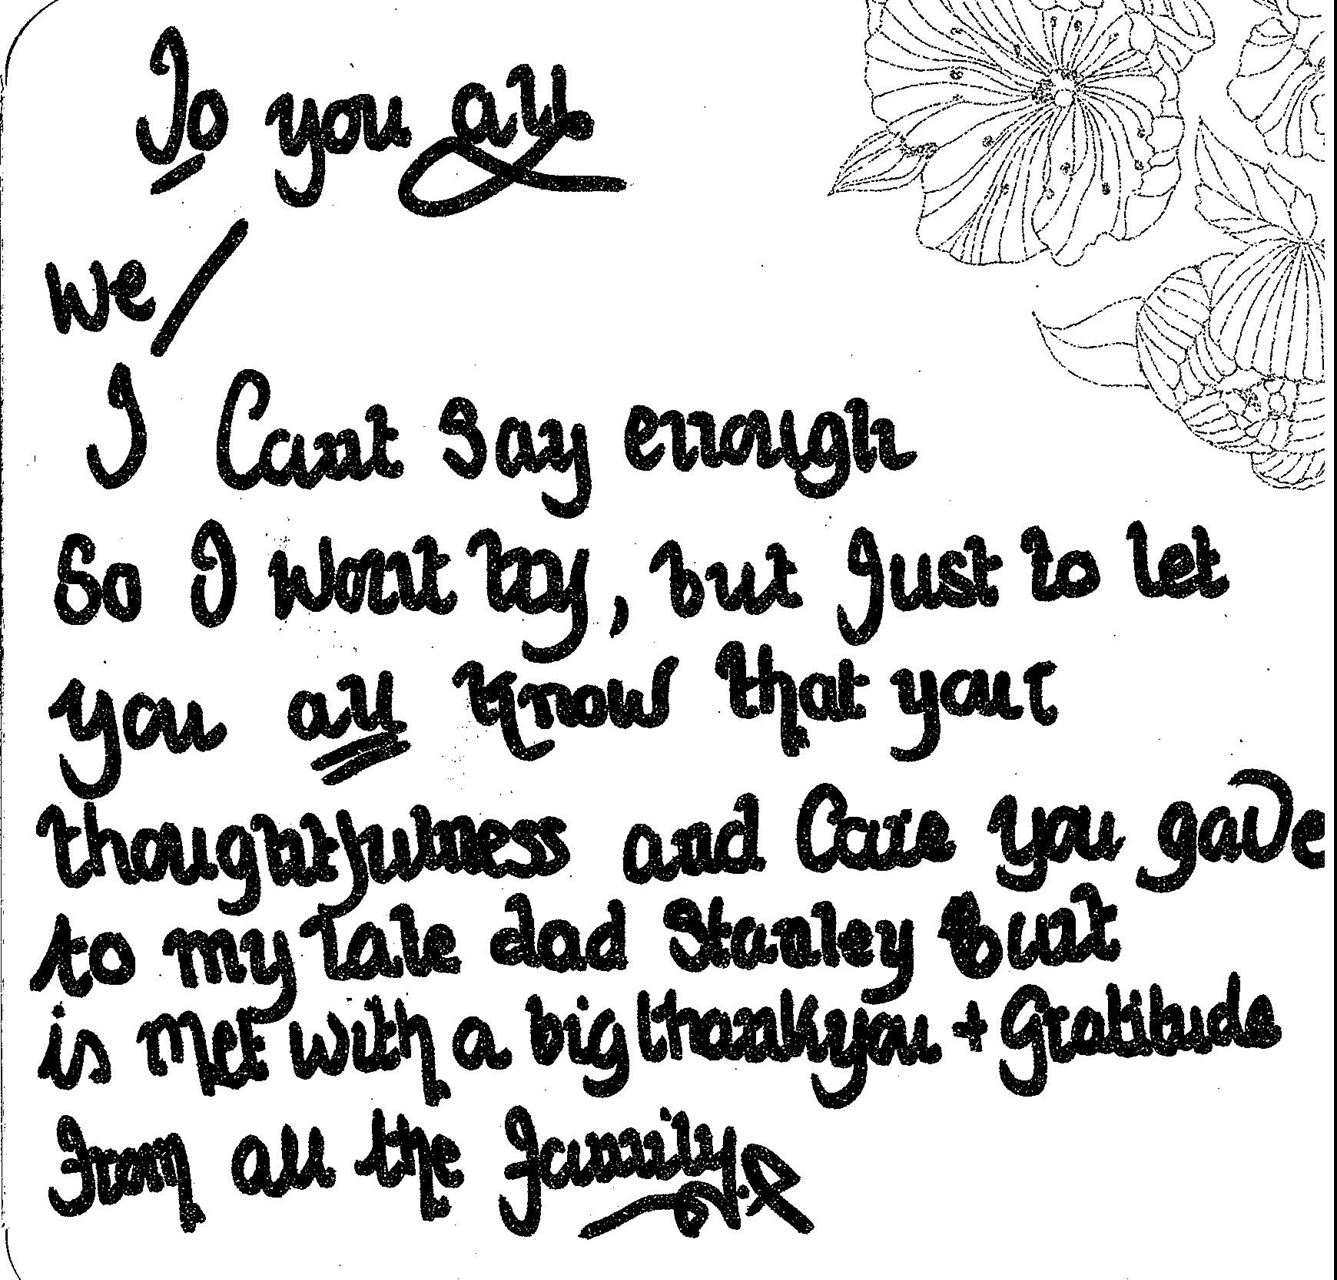 To you all
We/
I Cant Say enough
So I Wont try, but Just to let
you all know that your
thoughtfulness and Care you gave
to my late dad Stanley Burt
is Met with a big thankyou + Gratitude
From all the family.